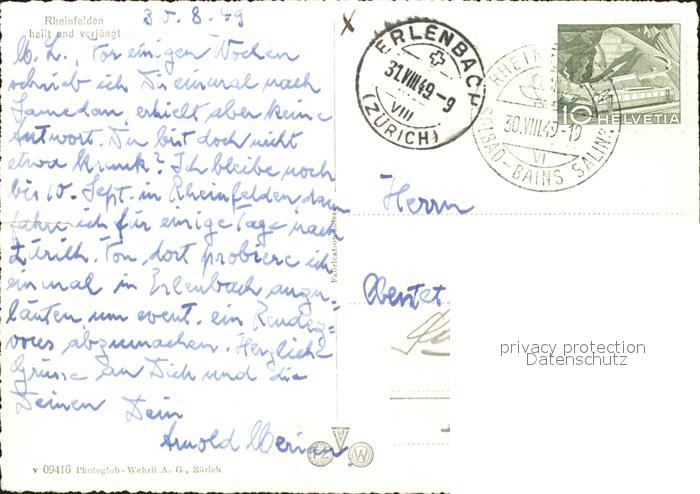 Rheinfelden
heilt und verjüngt
30.8.49
M. L., Vor einigen Wochen
schrieb ich Dir einmal nach
Samedan, erhielt aber keine
Antwort. Du bist doch nicht
etwa krank? Ich bleibe noch
bis 10. Sept. in Rheinfelden, dann
fahre ich für einige Tage nach
Zürich. Von dort probiere ich
einmal in Erlenbach anzu-
läuten, um event. ein Rendez-
vous abzumachen. Herzliche
Grüsse an Dich und die
Deinen Dein
Arnold Merian.
v 09416 Photoglob-Wehrli A. G., Zürich
ERLENBACH
31.VIII.49.-9
VIII
(ZÜRICH)
30.VIII.49-19
VI
SOLBAD-BAINS SALINS
10 HELVETIA
Herrn
PZ
W
privacy protection
Datenschutz